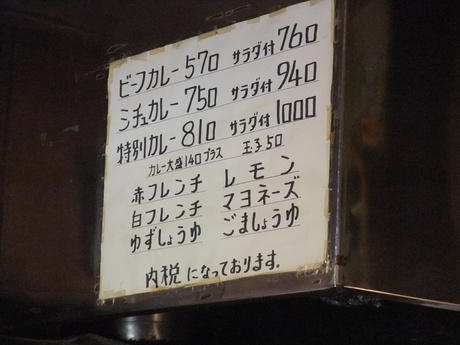 ビーフカレー570 サラダ付760
シチュカレー750 サラダ付940
特別カレー810 サラダ付1000
カレー大盛140プラス 玉子50
赤フレンチ レモン
白フレンチ マヨネーズ
ゆずしょうゆ ごましょうゆ
内税になっております.